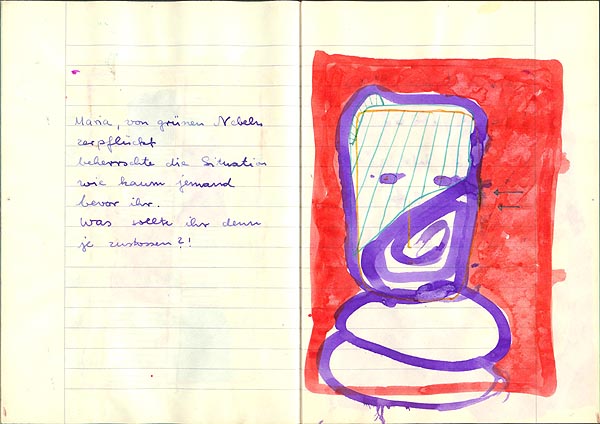 Maria, von grünen Nebeln
zerpflückt
beherrschte die Situation
wie kaum jemand
bevor ihr.
Was sollte ihr denn
je zustossen?!